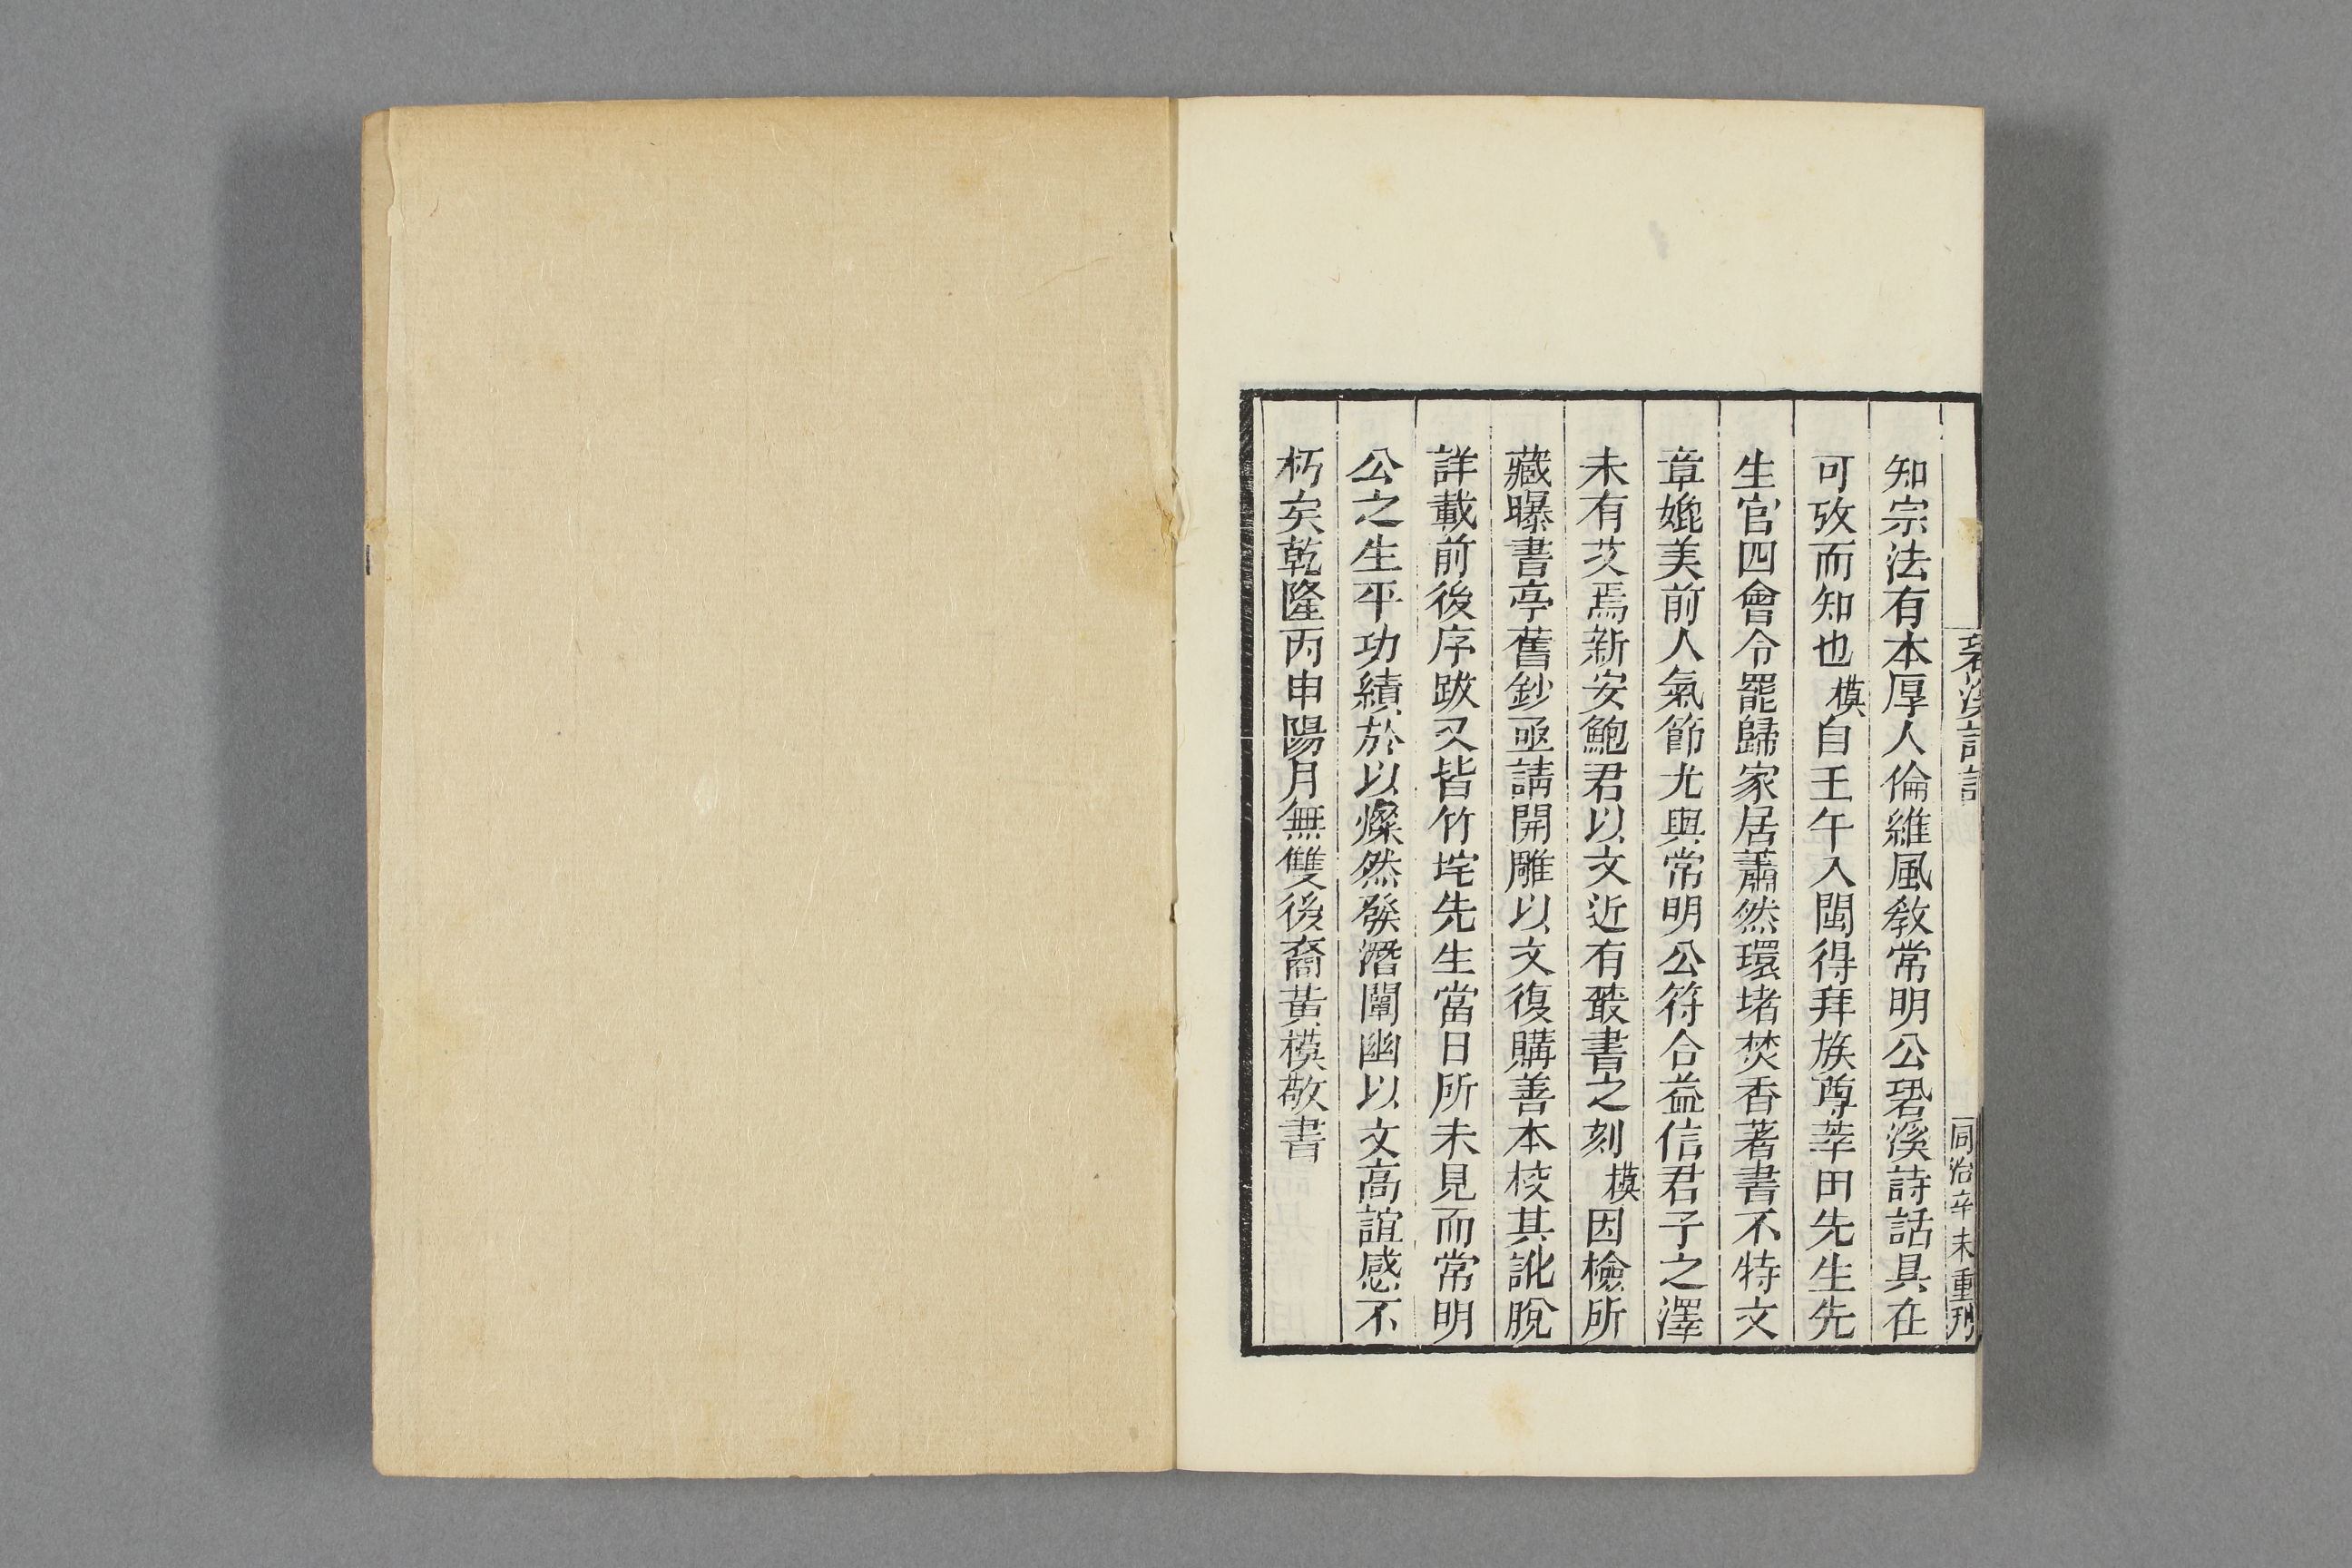 䂬溪詩話
同治辛未重刋
知宗法有本厚人倫維風教常明公䂬溪詩話具在
可攷而知也模自壬午入閩得拜族尊莘田先生先
生官四會令罷歸家居蕭然環堵焚香著書不特文
章媲美前人氣節尤與常明公符合益信君子之澤
未有艾焉新安鮑君以文近有叢書之刻模因檢所
藏曝書亭舊鈔亟請開雕以文復購善本校其訛脫
詳載前後序跋又皆竹垞先生當日所未見而常明
公之生平功績於以燦然發潛闡幽以文高誼感不
朽矣乾隆丙申陽月無雙後裔黃模敬書